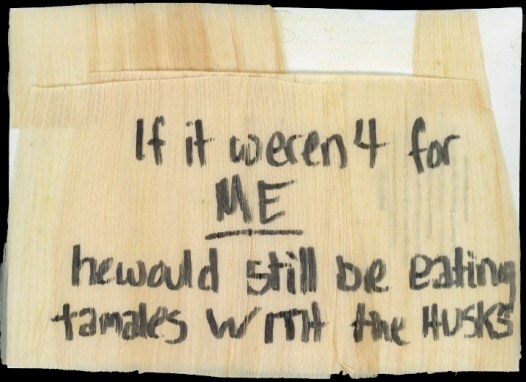 If it weren4 for
ME
hewould still be eating
tamales WITH the HUSKS